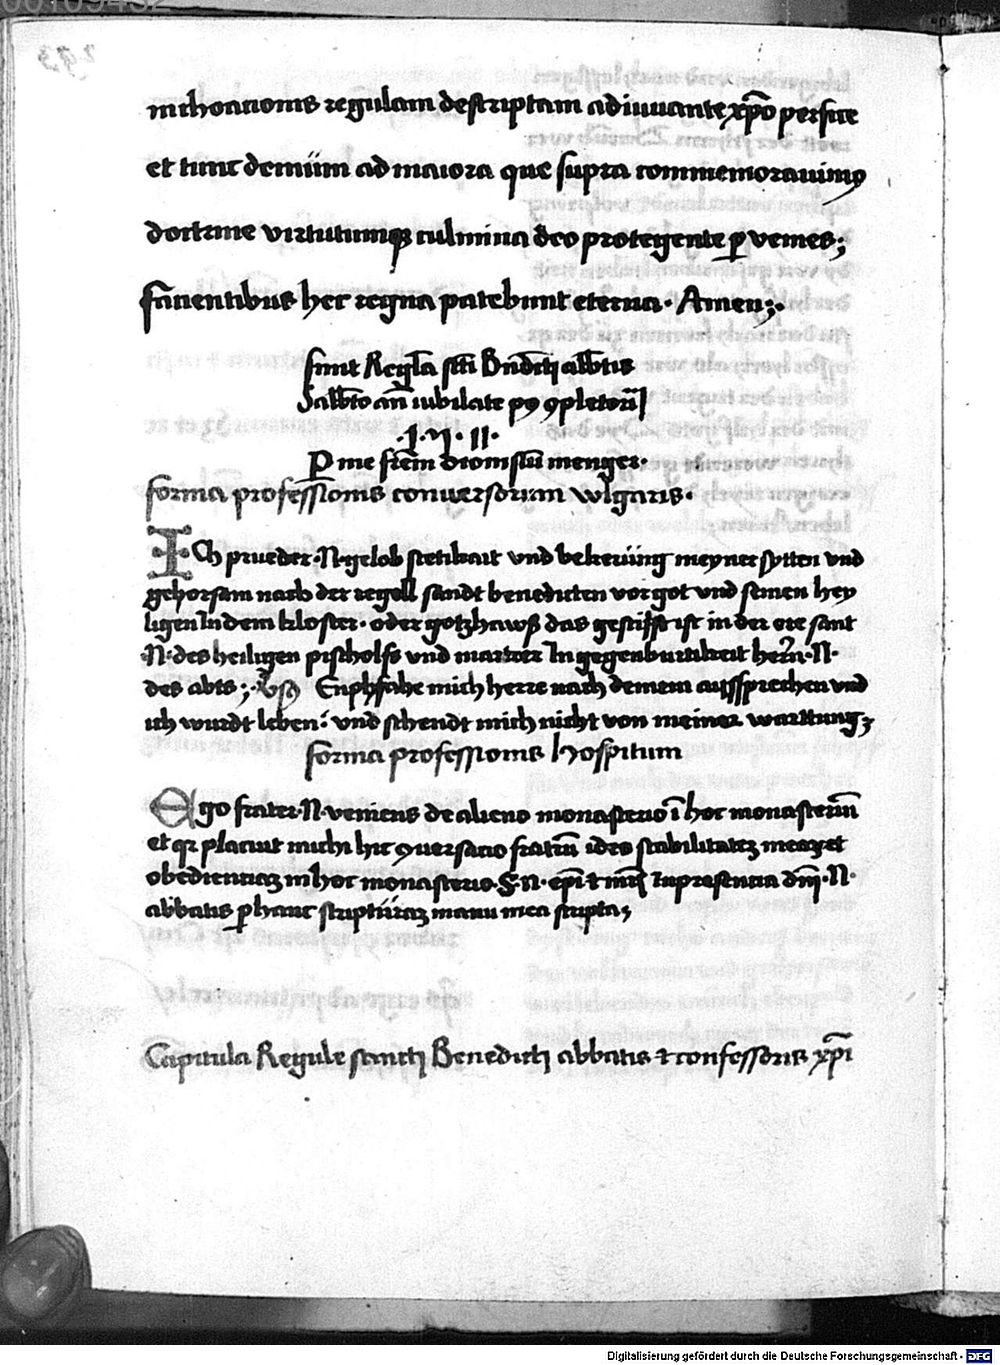 inchoationis regulam descriptam adiuuante xp̄o perfice
et tunc demum ad maiora que supra commemorauimꝯ
doctrine virtutumqꝫ culmina deo protegente ꝑvenies;
facientibus hec regna patebunt eterna. Amen;.
finit Regl̄a scī Bn̄dicti abb̄tis
Sabb̄to an̄ iubilate pꝯ ꝯpletoriū
P me frēm Dionisiū menger.
forma professionis conuersorum wlgaris.
ICh prueder .N. gelob stetikait vnd bekerüng meyner sytten vnd
gehorsam nach der regell sandt benedicten vor got vnd seinen hey
ligen In dem kloster. oder gotzhawß das gestifft ist in der ere sant
.N. des heiligen pischolfs vnd martrer In gegenburtikeit hern̄ .N.
des abts;. Enphfahe mich herre nach deinem aussprechen vnd
ich wurdt leben: vnd schendt mich nicht von meiner warttung;
forma professionis hospitum
Ego frater .N. veniens de alieno monasterio ī hoc monasteriū
et qꝛ placuit michi hic ꝯuersatio fratrū ideo stabilitatēꝫ meaꝫ et
obedientiaꝫ in hoc monasterio .S. N. ep̄i ⁊ mr̄is In presentia dn̄i .N.
abbatis ꝑ hanc scriptüraꝫ manu mea scripta;
Capitula Regule sancti Benedicti abbatis ⁊ confessoris xp̄i
Digitalisierung gefördert durch die Deutsche Forschungsgemeinschaft - DFG